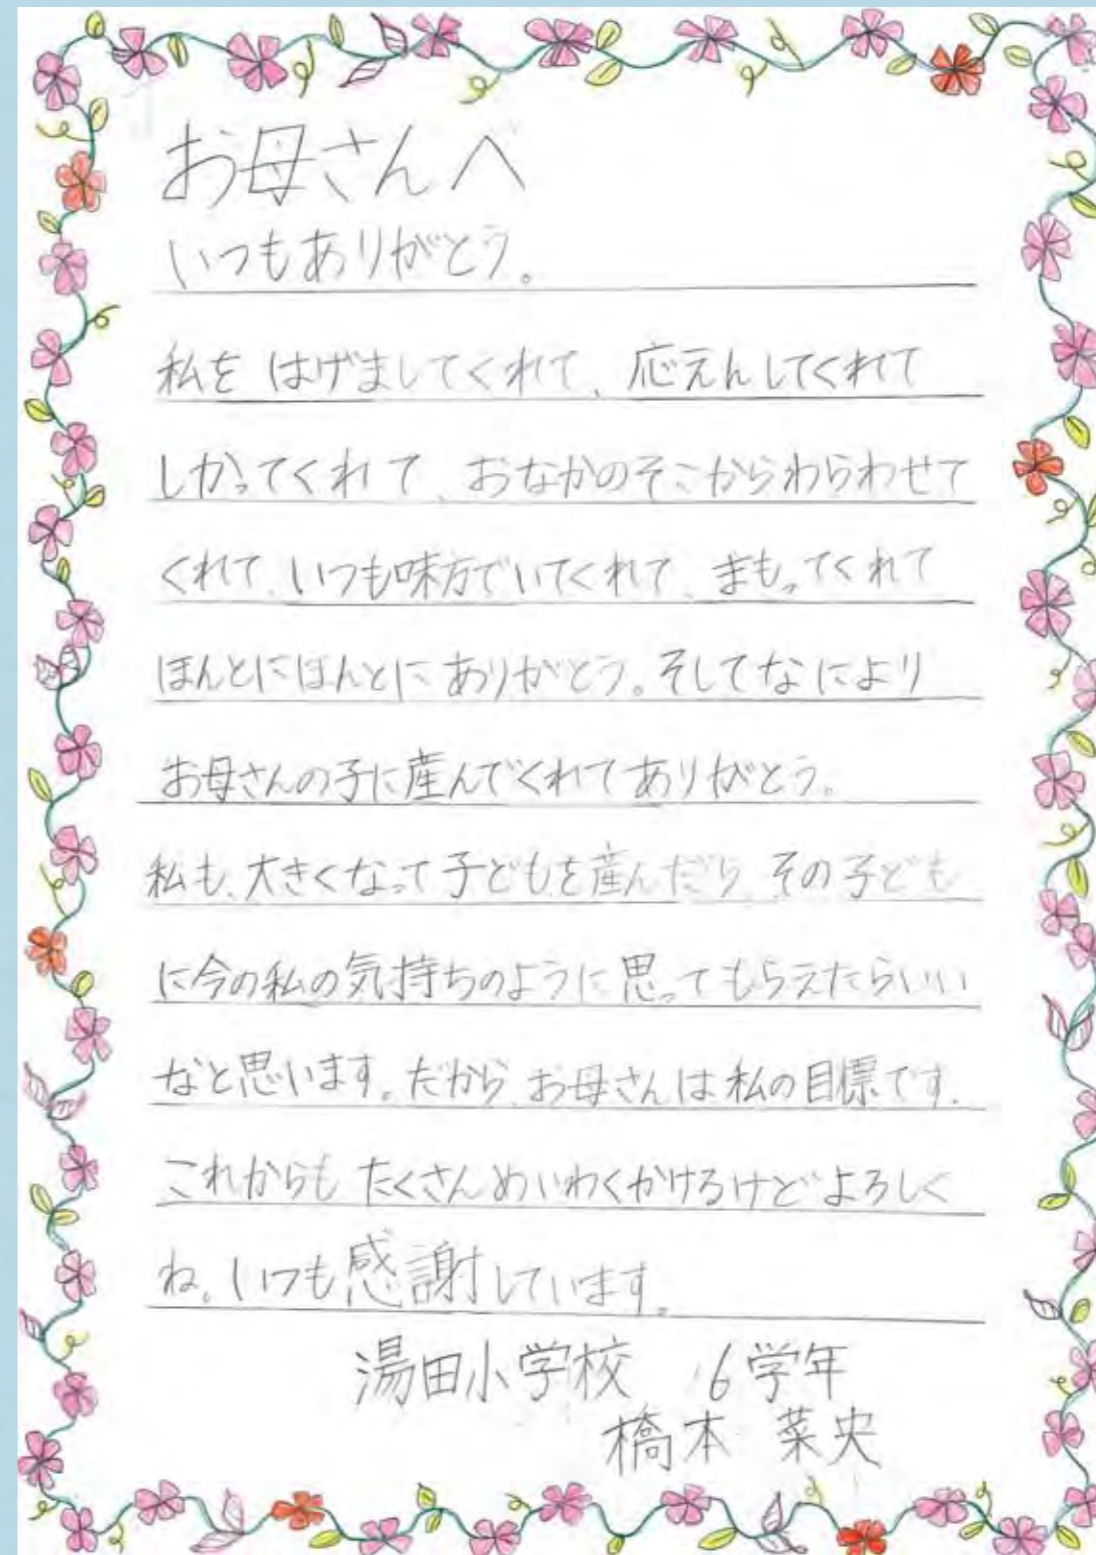 お母さんへ
いつもありがとう。
私をはげましてくれて、応えんしてくれて
しかってくれて、おなかのそこからわらわせて
くれて、いつも味方でいてくれて、まもってくれて
ほんとにほんとにありがとう。そしてなにより
お母さんの子に産んでくれてありがとう。
私も、大きくなって子どもを産んだら、その子ども
に今の私の気持ちのように思ってもらえたらいい
なと思います。だから、お母さんは私の目標です。
これからもたくさんめいわくかけるけどよろしく
ね。いつも感謝しています。
湯田小学校 6学年
橋本 菜央